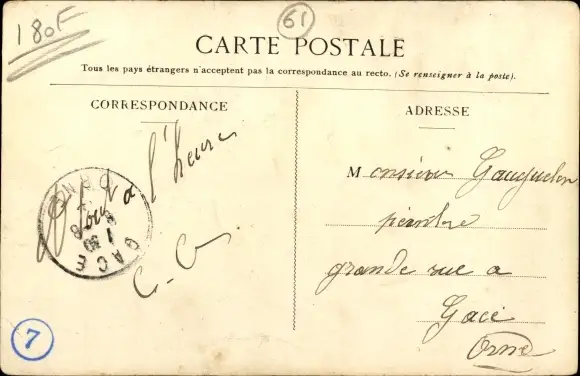 180F
61
CARTE POSTALE
Tous les pays étrangers n'acceptent pas la correspondance au recto. (Se renseigner à la poste).
CORRESPONDANCE
ADRESSE
à l'heure
C. G.
GACE
ORNE
Monsieur Gauguelin
peintre
grande rue a
Gacé
Orne
7